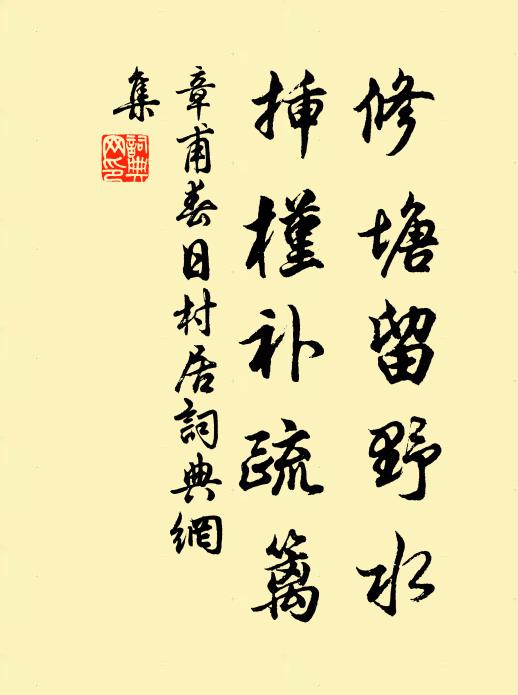 修塘留野水
插槿补疏篱
章甫春日村居詞典網
集
詞典
网印